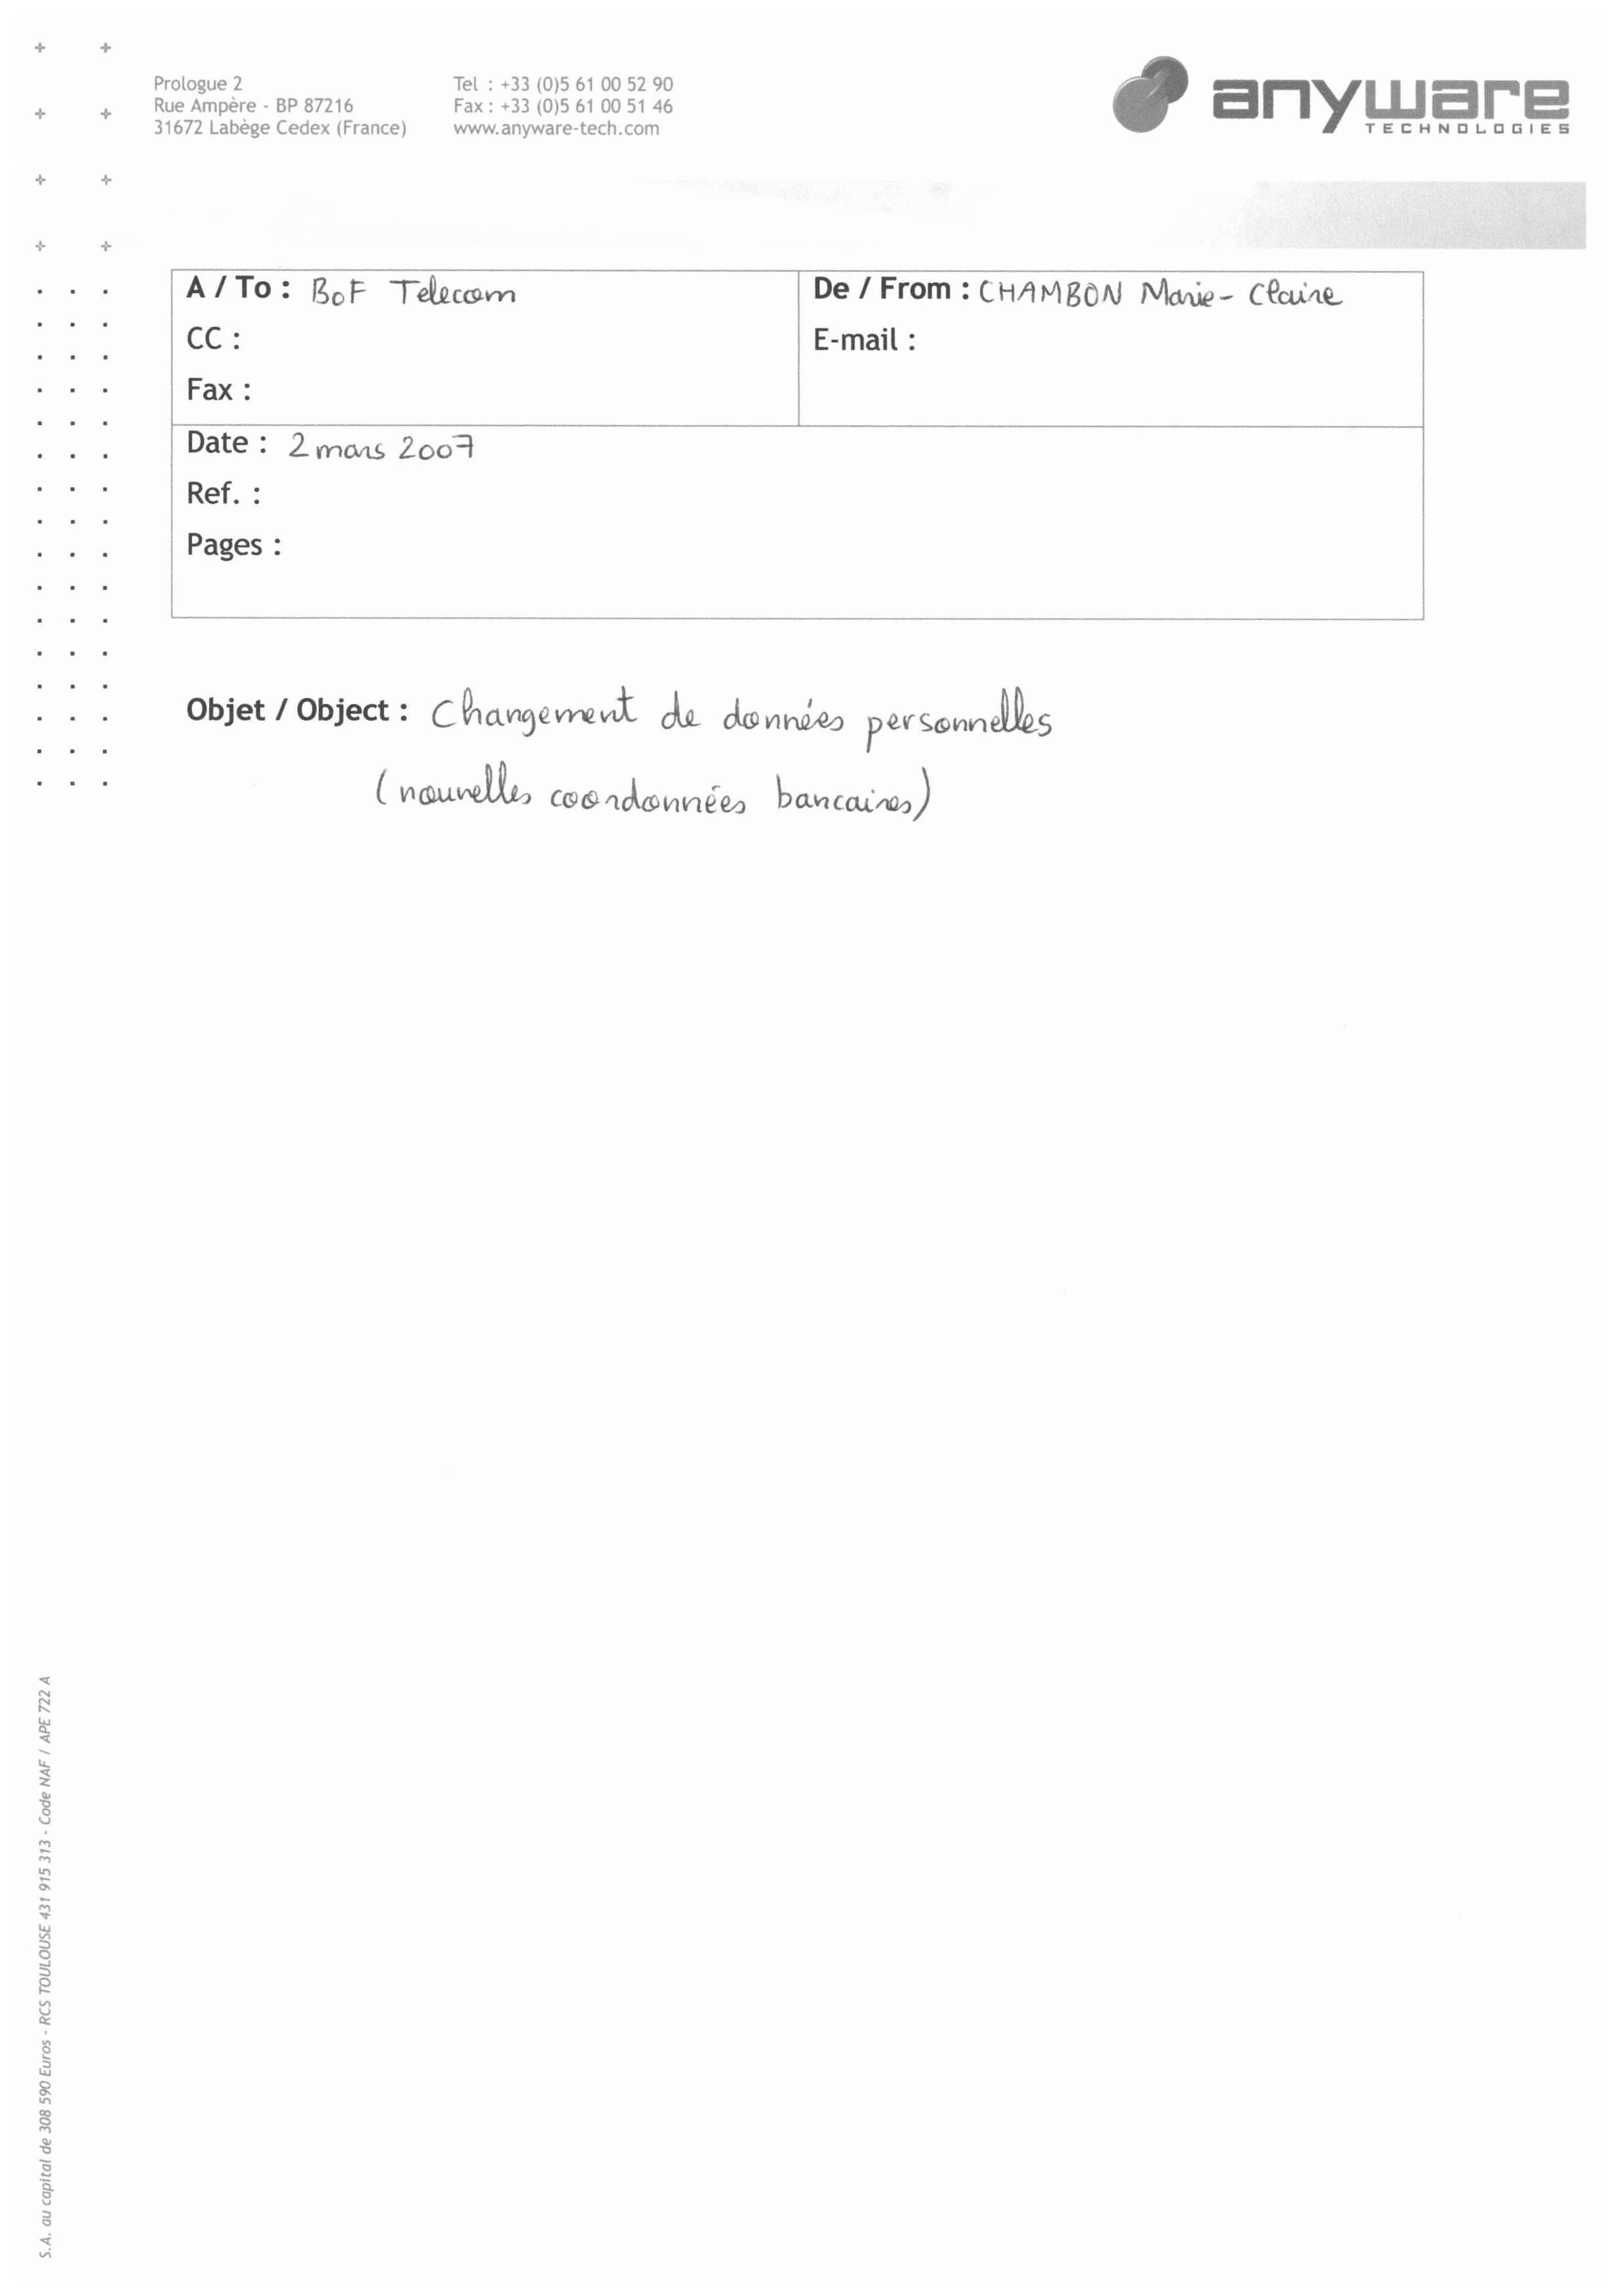 Prologue 2
Rue Ampère - BP 87216
31672 Labège Cedex (France)
Tel : +33 (0)5 61 00 52 90
Fax : +33 (0)5 61 00 51 46
www.anyware-tech.com
anyware
TECHNOLOGIES
A / To : BoF Telecom
CC :
Fax :
De / From : CHAMBON Marie-Claire
E-mail :
Date : 2 mars 2007
Ref. :
Pages :
Objet / Object : Changement de données personnelles
(nouvelles coordonnées bancaires)
S.A. au capital de 308 590 Euros - RCS TOULOUSE 431 915 313 - Code NAF / APE 722 A